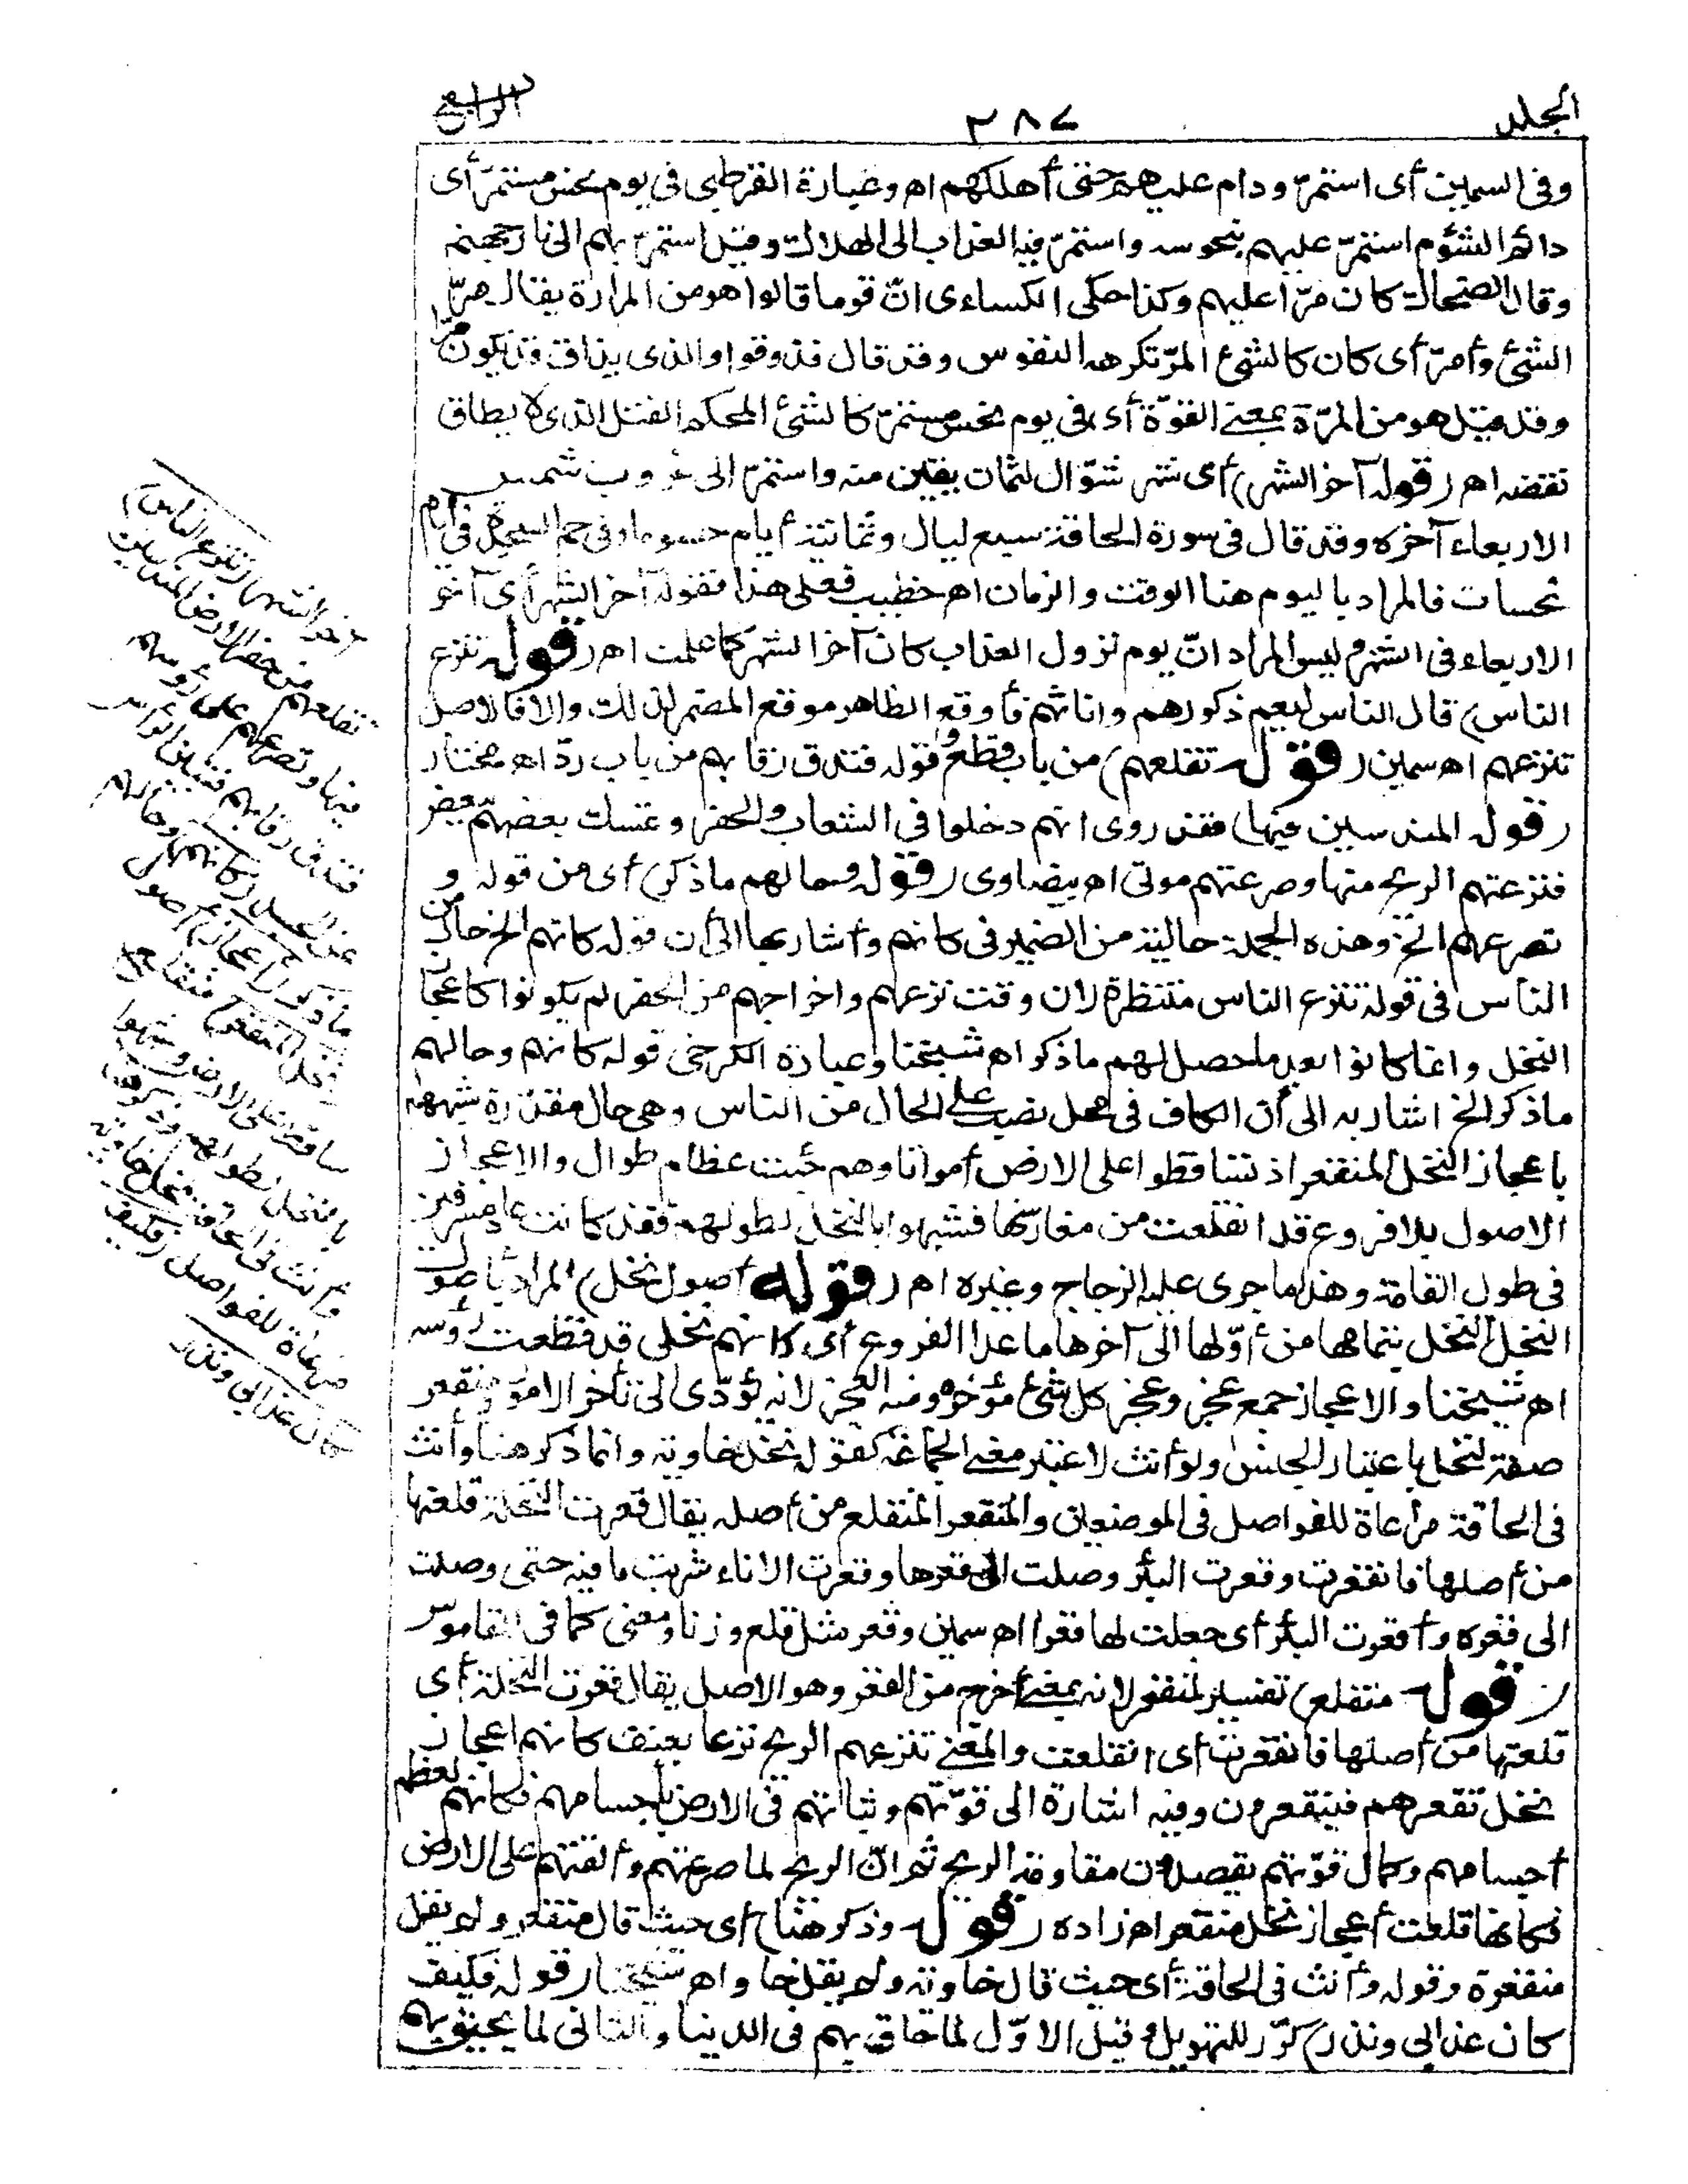 المجلد
٣٨٧
الرابع
وفى السمين أى استمرّ ودام عليهم حتى أهلكهم اه وعبارة القرطبى فى يوم نحس مستمرّ أى
دائم الشؤم استمرّ عليهم بنحوسه واستمرّ فيه العذاب الى الهلاك وقيل استمرّ بهم الى نار جهنم
وقال الضحاك كان مرّا عليهم وكذا حكى الكساءى انّ قوما قالوا هو من المرارة يقال مرّ
الشئ وأمرّ أى كان كالشئ المرّ تكرهه النفوس وقد قال فذوقوا والذى يذاق قد يكون مرّا
وقد قيل هو من المرّة بمعنى القوّة أى فى يوم نحس مستمرّ كالشئ المحكم الفتل الذى لا يطاق
نقضه اه (قوله آخر الشهر) أى شهر شوّال لثمان بقين منه واستمرّ الى غروب شمس
الاربعاء آخره وقد قال فى سورة الحاقة سبع ليال وثمانية أيام حسوما وفى حم السجدة فى أيام
نحسات فالمراد باليوم هنا الوقت والزمان اه خطيب فعلى هذا فقوله آخر الشهر أى آخر
الاربعاء فى الشهر وليس المراد انّ يوم نزول العذاب كان آخر الشهر كما علمت اه (قوله تنزع
الناس) قال الناس ليعم ذكورهم واناثهم فأوقع الظاهر موقع المضمر لذلك والا فالاصل
تنزعهم اه سمين (قوله تقلعهم) من باب قطع وقوله فتدق رقابهم من باب ردّ اه مختار
(قوله المندسين فيها) فقد روى انهم دخلوا فى الشعاب والحفر وتمسك بعضهم ببعض
فنزعتهم الريح منها وصرعتهم موتى اه بيضاوى (قوله وحالهم ما ذكر) أى من قوله و
تصرعهم الخ وهذه الجملة حالية من الضمير فى كانهم وأشار بها الى أن قوله كانهم الخ حال من
الناس فى قوله تنزع الناس منتظرة لان وقت نزعهم واخراجهم من الحفر لم يكونوا كاعجاز
النخل وانما كانوا بعد ما حصل لهم ما ذكر اه شيخنا وعبارة الكرخى قوله كانهم وحالهم
ما ذكر الخ اشار به الى أن الكاف فى محل نصب على الحال من الناس وهى حال مقدرة شبههم
باعجاز النخل المنقعر اذ تساقطوا على الارض أمواتا وهم جثث عظام طوال والاعجاز
الاصول بلا فروع قد انقلعت من مغارسها فشبهوا بالنخل لطولهم فقد كانت عاد مسرفين
فى طول القامة وهذا ما جرى عليه الزجاج وغيره اه (قوله أصول نخل) المراد باصول
النخل النخل بتمامها من أوّلها الى آخرها ما عدا الفروع أى كانهم نخل قد قطعت رؤسه
اه شيخنا والاعجاز جمع عجز وعجز كل شئ مؤخره ومنه العجز لانه يؤدّى الى تأخر الامور ومنقعر
صفة لنخل باعتبار الجنس ولو أنث لاعتبر معنى الجماعة كقوله نخل خاوية وانما ذكر هنا وأنث
فى الحاقة مراعاة للفواصل فى الموضعين والمنقعر المنقلع من أصله يقال قعرت النخلة قلعتها
من أصلها فانقعرت وقعرت البئر وصلت الى قعرها وقعرت الاناء شربت ما فيه حتى وصلت
الى قعره وأقعرت البئر أى جعلت لها قعرا اه سمين وقعر مثل قلع وزنا ومعنى كما فى القاموس
(قوله منقلع) تفسير لمنقعر لانه بمعنى أخرج من القعر وهو الاصل يقال قعرت النخلة أى
قلعتها من أصلها فانقعرت أى انقلعت والمعنى تنزعهم الريح نزعا بعنف كانهم اعجاز
نخل تقعرهم فينقعرون وفيه اشارة الى قوّتهم وثباتهم فى الارض باجسامهم فكانهم لعظم
أجسامهم وكمال قوّتهم يقصدون مقاومة الريح ثم انّ الريح لما صرعتهم وألقتهم على الارض
فكانها قلعت أعجاز نخل منقعر اه زاده (قوله وذكر هنا) أى حيث قال منقعر ولم يقل
منقعرة وقوله وأنث فى الحاقة أى حيث قال خاوية ولم يقل خاو اه شيخنا (قوله فكيف
كان عذابى ونذر) كرّر للتهويل وقيل الاوّل لما حاق بهم فى الدنيا والثانى لما يحيق بهم
آخر الشهر (تنزع الناس)
تقلعهم من حفر الارض المندسين
فيها وتصرعهم على رؤسهم
فتدق رقابهم فتبين الرأس
عن الجسد (كانهم) وحالهم
ما ذكر (أعجاز) أصول
(نخل منقعر) منقلع
ساقط على الارض وشبهوا
بالنخل لطولهم وذكر هنا
وأنث فى الحاقة نخل خاوية
مراعاة للفواصل (فكيف
كان عذابى ونذر